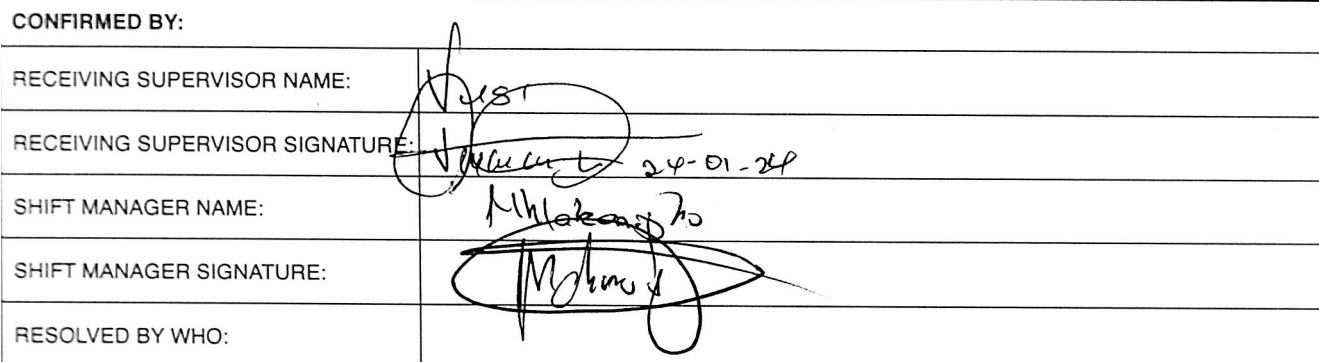 CONFIRMED BY:
RECEIVING SUPERVISOR NAME:
RECEIVING SUPERVISOR SIGNATURE: 24-01-24
SHIFT MANAGER NAME:
SHIFT MANAGER SIGNATURE:
RESOLVED BY WHO: